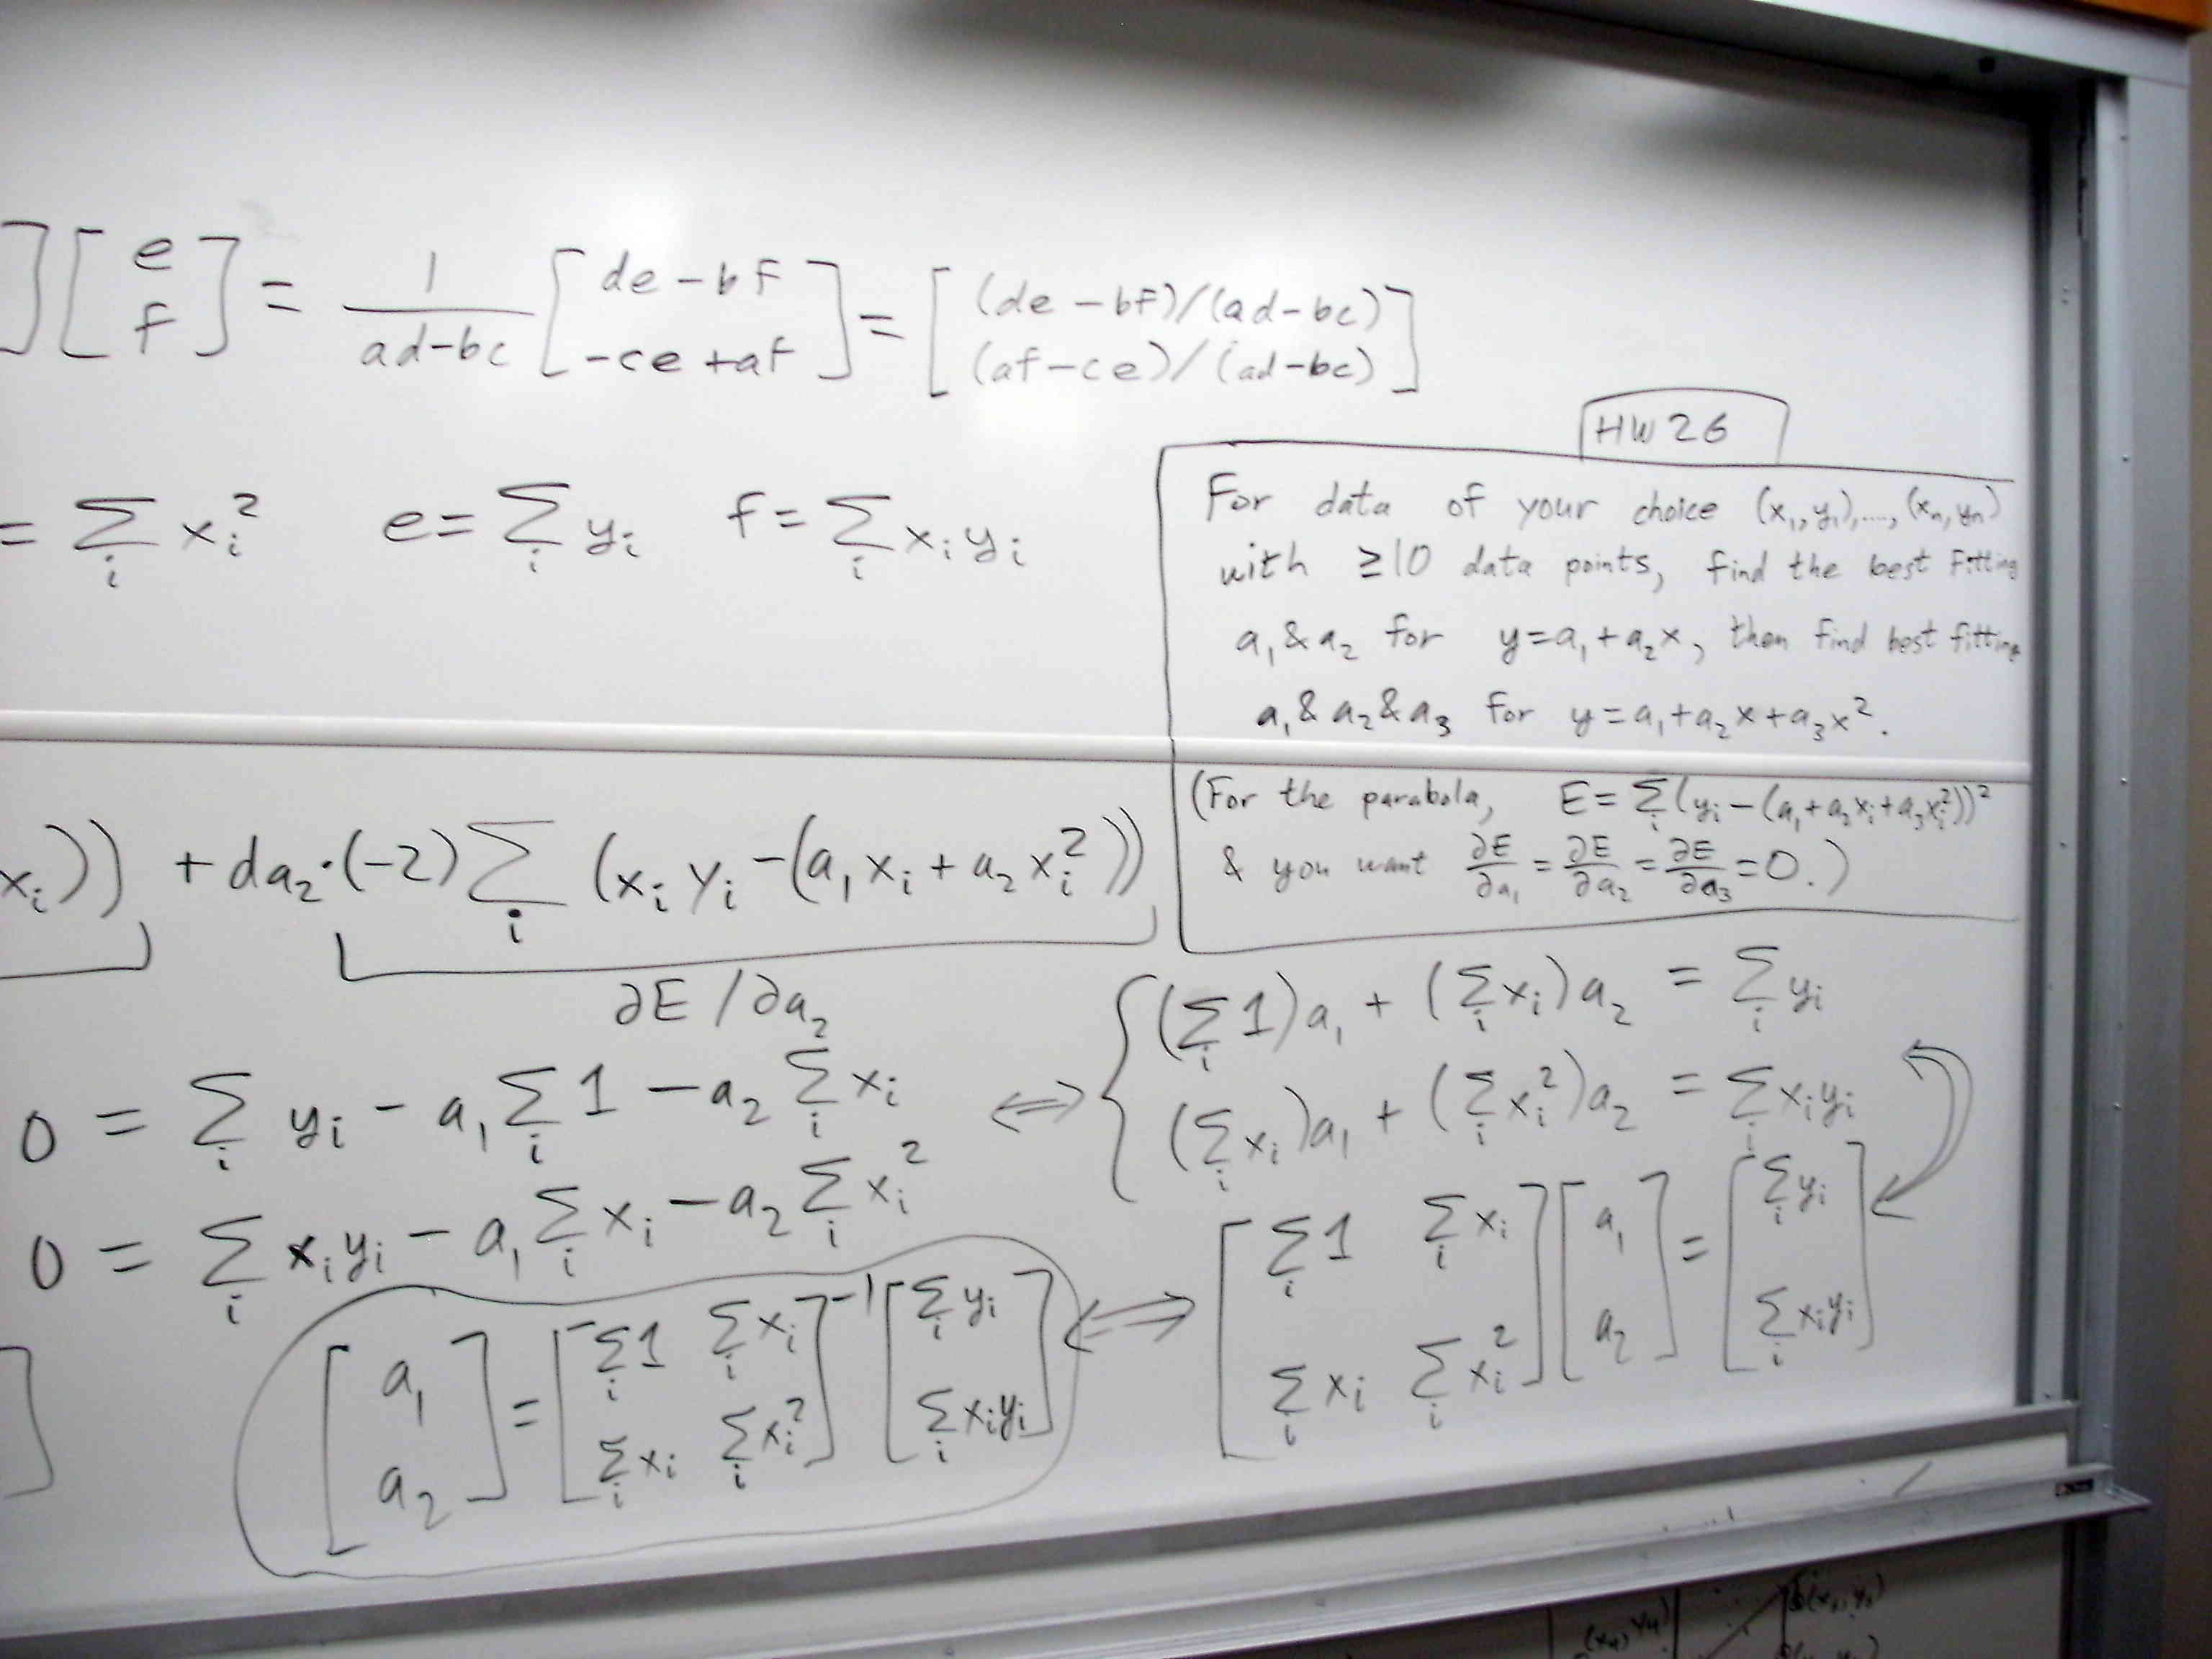 ] [ e f ] = 1/(ad-bc) [ de - bf -ce + af ] = [ (de - bf)/(ad-bc) (af - ce)/(ad-bc) ]
= Σ_i x_i^2 e = Σ_i y_i f = Σ_i x_i y_i
HW 26
For data of your choice (x_1, y_1), ...., (x_n, y_n)
with ≥10 data points, find the best fitting
a_1 & a_2 for y = a_1 + a_2 x, then find best fitting
a_1 & a_2 & a_3 for y = a_1 + a_2 x + a_3 x^2.
(For the parabola, E = Σ_i (y_i - (a_1 + a_2 x_i + a_3 x_i^2))^2
& you want ∂E/∂a_1 = ∂E/∂a_2 = ∂E/∂a_3 = 0.)
x_i)) + da_2·(-2) Σ_i (x_i y_i - (a_1 x_i + a_2 x_i^2))
∂E / ∂a_2
0 = Σ_i y_i - a_1 Σ_i 1 - a_2 Σ_i x_i
0 = Σ_i x_i y_i - a_1 Σ_i x_i - a_2 Σ_i x_i^2
⇔ { (Σ_i 1) a_1 + (Σ_i x_i) a_2 = Σ_i y_i
(Σ_i x_i) a_1 + (Σ_i x_i^2) a_2 = Σ_i x_i y_i
[ Σ_i 1 Σ_i x_i Σ_i x_i Σ_i x_i^2 ] [ a_1 a_2 ] = [ Σ_i y_i Σ_i x_i y_i ]
[ a_1 a_2 ] = [ Σ_i 1 Σ_i x_i Σ_i x_i Σ_i x_i^2 ]^-1 [ Σ_i y_i Σ_i x_i y_i ] ⇔
(x_4, y_4)